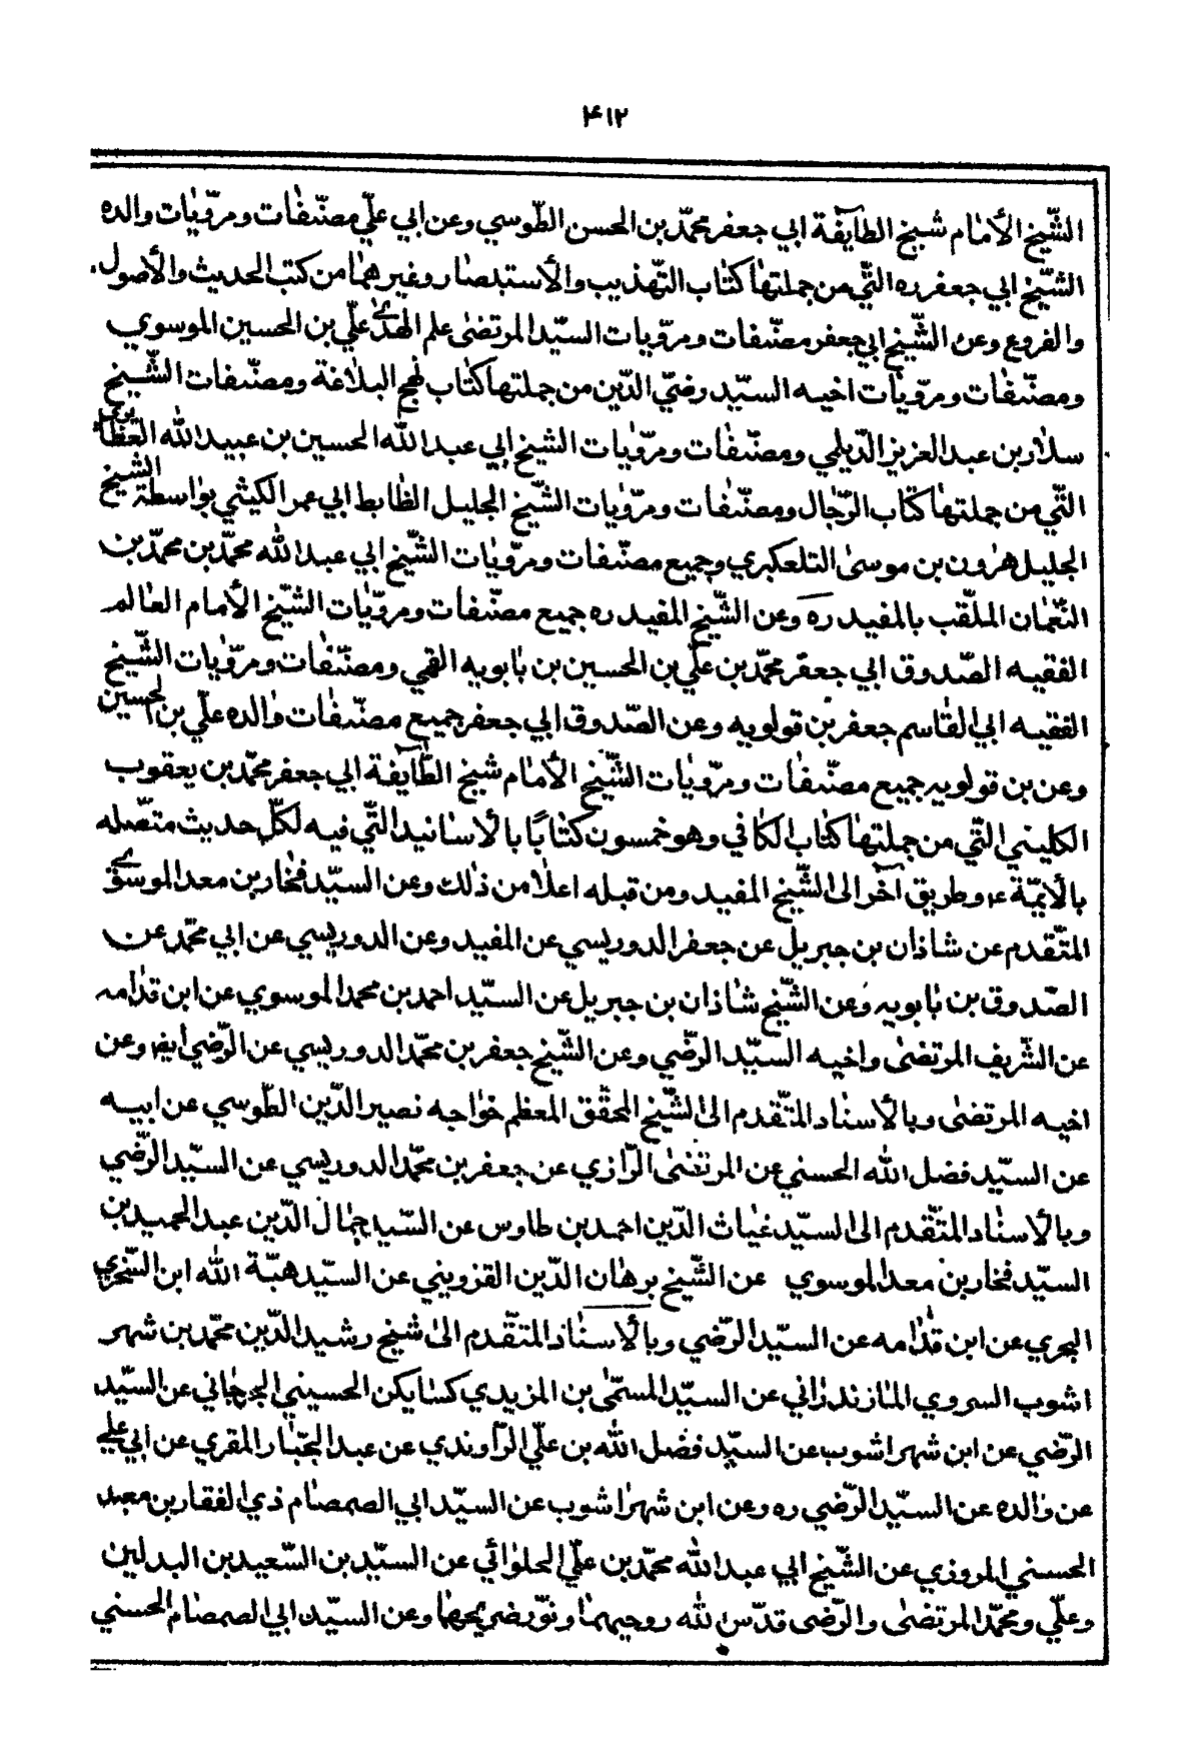 ۴۱۲
الشّيخ الأمام شيخ الطايفة ابي جعفر محمّد بن الحسن الطّوسي وعن ابي عليّ مصنّفات ومرويّات والده
الشّيخ ابي جعفر ره الّتي من جملتها كتاب التّهذيب والأستبصار وغيرهما من كتب الحديث والأصول
والفروع وعن الشّيخ ابي جعفر مصنّفات ومرويّات السيّد المرتضى علم الهدى علي بن الحسين الموسوي
ومصنّفات ومرويّات اخيه السيّد رضيّ الدّين من جملتها كتاب نهج البلاغة ومصنّفات الشّيخ
سلار بن عبد العزيز الدّيلمي ومصنّفات ومرويّات الشيخ ابي عبد الله الحسين بن عبيد الله الغضايري
الّتي من جملتها كتاب الرّجال ومصنّفات ومرويّات الشّيخ الجليل الظابط ابي عمر الكيشي بواسطة الشيخ
الجليل هرون بن موسى التلعكبري وجميع مصنّفات ومرويّات الشّيخ ابي عبد الله محمّد بن محمّد بن
النّعمان الملّقب بالمفيد ره وعن الشّيخ المفيد ره جميع مصنّفات ومرويّات الشّيخ الأمام العالم
الفقيه الصّدوق ابي جعفر محمّد بن عليّ بن الحسين بن بابويه القمي ومصنّفات ومرويّات الشّيخ
الفقيه ابي القاسم جعفر بن قولويه وعن الصّدوق ابي جعفر جميع مصنّفات والده عليّ بن الحسين
وعن بن قولويه جميع مصنّفات ومرويّات الشّيخ الأمام شيخ الطّايفة ابي جعفر محمّد بن يعقوب
الكليني الّتي من جملتها كتاب الكافي وهو خمسون كتابًا بالأسانيد الّتي فيه لكلّ حديث متّصله
بالأيمّة ع، وطريق آخر الى الشّيخ المفيد ومن قبله اعلا من ذلك وعن السيّد فخار بن معد الموسوي
المتّقدم عن شاذان بن جبريل عن جعفر الدوريسي عن المفيد وعن الدوريسي عن ابي محمّد عن
الصّدوق بن بابويه وعن الشّيخ شاذان بن جبريل عن السيّد احمد بن محمد الموسوي عن ابن قدامه
عن الشّريف المرتضى واخيه السيّد الرضّي وعن الشّيخ جعفر بن محمّد الدوريسي عن الرّضي ايض وعن
اخيه المرتضى وبالأسناد المتّقدم الى الشّيخ المحقّق المعظم خواجه نصير الدّين الطّوسي عن ابيه
عن السيّد فضل الله الحسني عن المرتضى الرّازي عن جعفر بن محمّد الدوريسي عن السيّد الرّضي
وبالأسناد المتّقدم الى السيّد غياث الدّين احمد بن طاوس عن السّيد جمال الدّين عبد الحميد بن
السيّد فخار بن معد الموسوي عن الشّيخ برهان الدّين القزويني عن السيّد هبّة الله ابن الشّجري
البحري عن ابن قدامه عن السيّد الرّضي وبالأسناد المتّقدم الى شيخ رشيد الدّين محمّد بن شهر
اشوب السروي المازندراني عن السيّد المسمّى بن المزيدي كسايكن الحسيني الجرجاني عن السيّد
الرّضي عن ابن شهر اشوب عن السيّد فضل الله بن عليّ الرّاوندي عن عبد الجبّار المقري عن ابي علي
عن والده عن السيّد الرّضي ره وعن ابن شهراشوب عن السيّد ابي الصمصام ذي الفقار بن معبد
الحسني المروزي عن الشّيخ ابي عبد الله محمّد بن عليّ الحلوائي عن السيّد بن السّعيد بن البدلين
وعليّ ومحمّد المرتضى والرّضى قدّس الله روحيهما ونوّر ضريحهما وعن السيّد ابي الصمصام الحسني